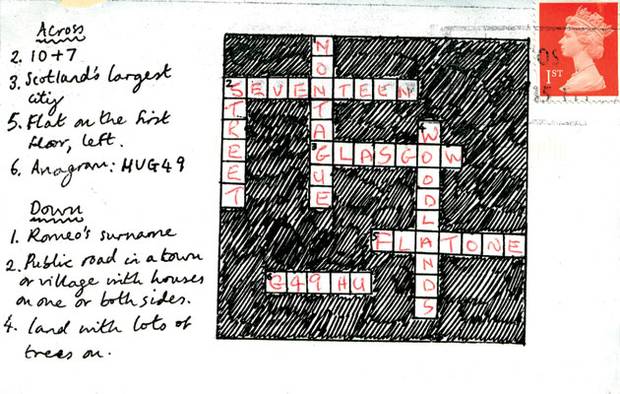 Across
2. 10+7
3. Scotland's largest
city
5. Flat on the first
floor, left.
6. Anagram: HUG49
Down
1. Romeo's surname
2. Public road in a town
or village with houses
on one or both sides.
4. land with lots of
trees on.
MONTAGUE
2 SEVENTEEN
STREET
3 GLASGOW
4 WOODLANDS
5 FLATONE
6 G49HU
1ST